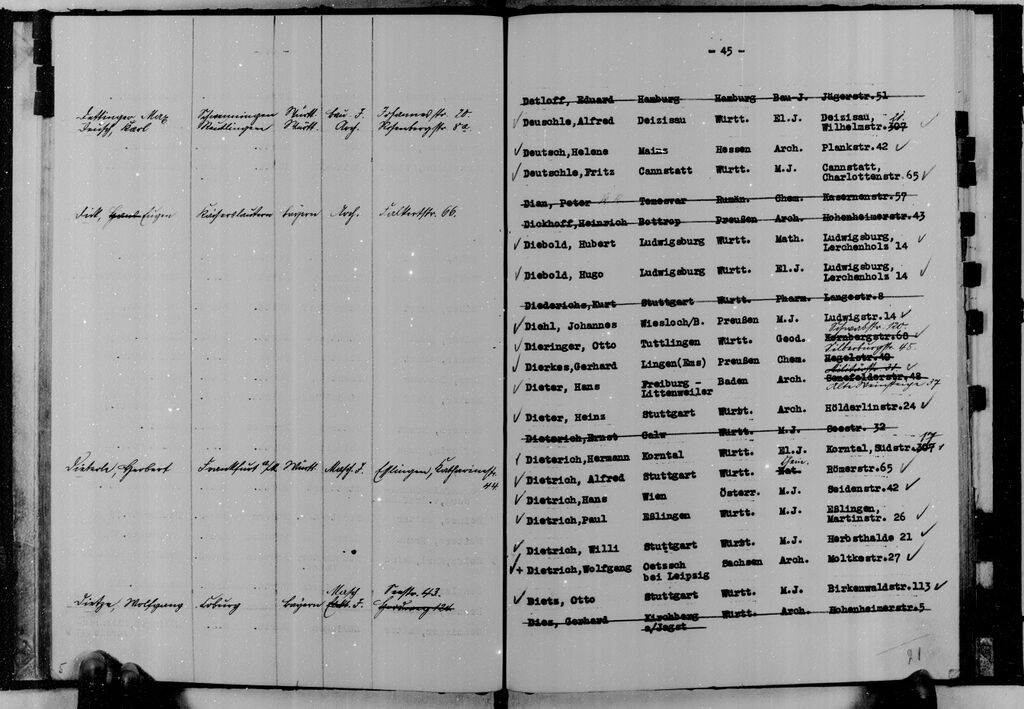 Dettinger, Max Schwenningen Württ. Bau J. Johannesstr. 20.
Deusch, Karl Reutlingen Württ. Arch. Rosenbergstr. 82
Dick, Eugen Kaiserslautern Bayern Arch. Falkertstr. 66.
Dieterle, Herbert Frankfurt a/M. Württ. Masch J. Eßlingen, Katharinenstr.
44
Masch Seestr. 43.
Dietze, Wolfgang Coburg Bayern J.
5
- 45 -
Detloff, Eduard Hamburg Hamburg Bau-J. Jägerstr.51
Deuschle, Alfred Deizisau Württ. El.J. Deizisau,
Wilhelmstr.307
Deutsch,Helene Mainz Hessen Arch. Plankstr.42
Deutschle,Fritz Cannstatt Württ. M.J. Cannstatt,
Charlottenstr.65
Dian, Peter Temesvar Rumän. Chem. Kasernenstr.57
Dickhoff,Heinrich Bottrop Preußen Arch. Hohenheimerstr.43
Diebold, Hubert Ludwigsburg Württ. Math. Ludwigsburg,
Lerchenholz 14
Diebold, Hugo Ludwigsburg Württ. El.J. Ludwigsburg,
Lerchenholz 14
Diederichs,Kurt Stuttgart Württ. Pharm. Langestr.8
Diehl, Johannes Wiesloch/B. Preußen M.J. Ludwigstr.14
Schwabstr. 120.
Dieringer, Otto Tuttlingen Württ. Geod. Kornbergstr.68
Silberburgstr. 45.
Dierkes,Gerhard Lingen(Ems) Preußen Chem. Hegelstr.49
Dieter, Hans Freiburg - Baden Arch. Senefelderstr.48
Littenweiler Alte Weinsteige 37
Dieter, Heinz Stuttgart Württ. Arch. Hölderlinstr.24
Dieterich,Ernst Calw Württ. M.J. Seestr. 32
17
Dieterich,Hermann Korntal Württ. El.J. Korntal, Südstr.307
Chem.
Dietrich, Alfred Stuttgart Württ. Nat. Römerstr.65
Dietrich,Hans Wien Österr. M.J. Seidenstr.42
Dietrich,Paul Eßlingen Württ. M.J. Eßlingen,
Martinstr. 26
Dietrich, Willi Stuttgart Württ. M.J. Herbsthalde 21
+ Dietrich,Wolfgang Oetzsch Sachsen Arch. Moltkestr.27
bei Leipzig
Dietz, Otto Stuttgart Württ. M.J. Birkenwaldstr.113
Diez, Gerhard Kirchberg Württ. Arch. Hohenheimerstr.5
a/Jagst
21